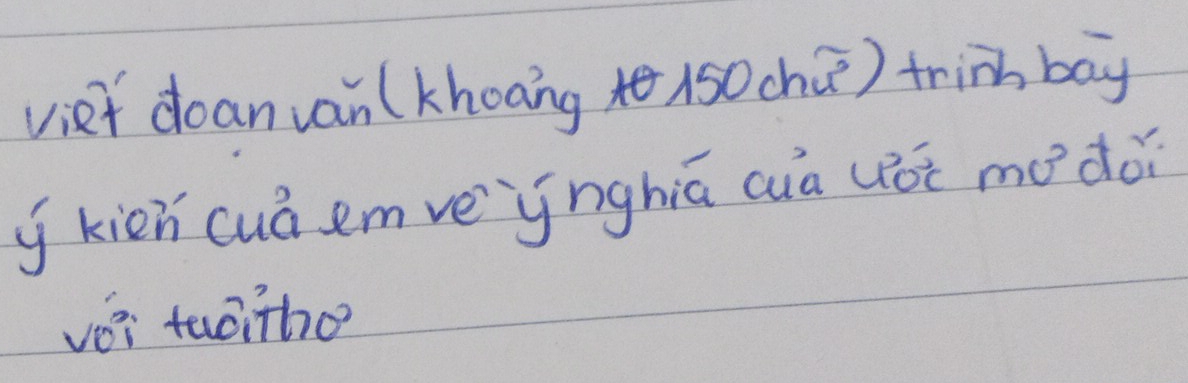 viết đoạn văn (khoảng 150 chữ) trình bày
ý kiến của em về ý nghĩa của ước mơ đối
với tuổi thơ